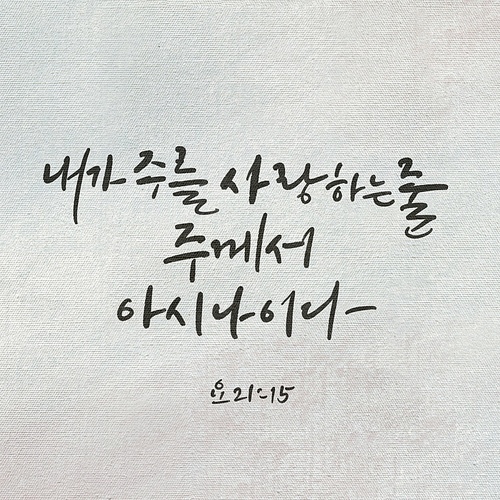 내가 주를 사랑하는 줄
주께서
아시나이다
요 21:15